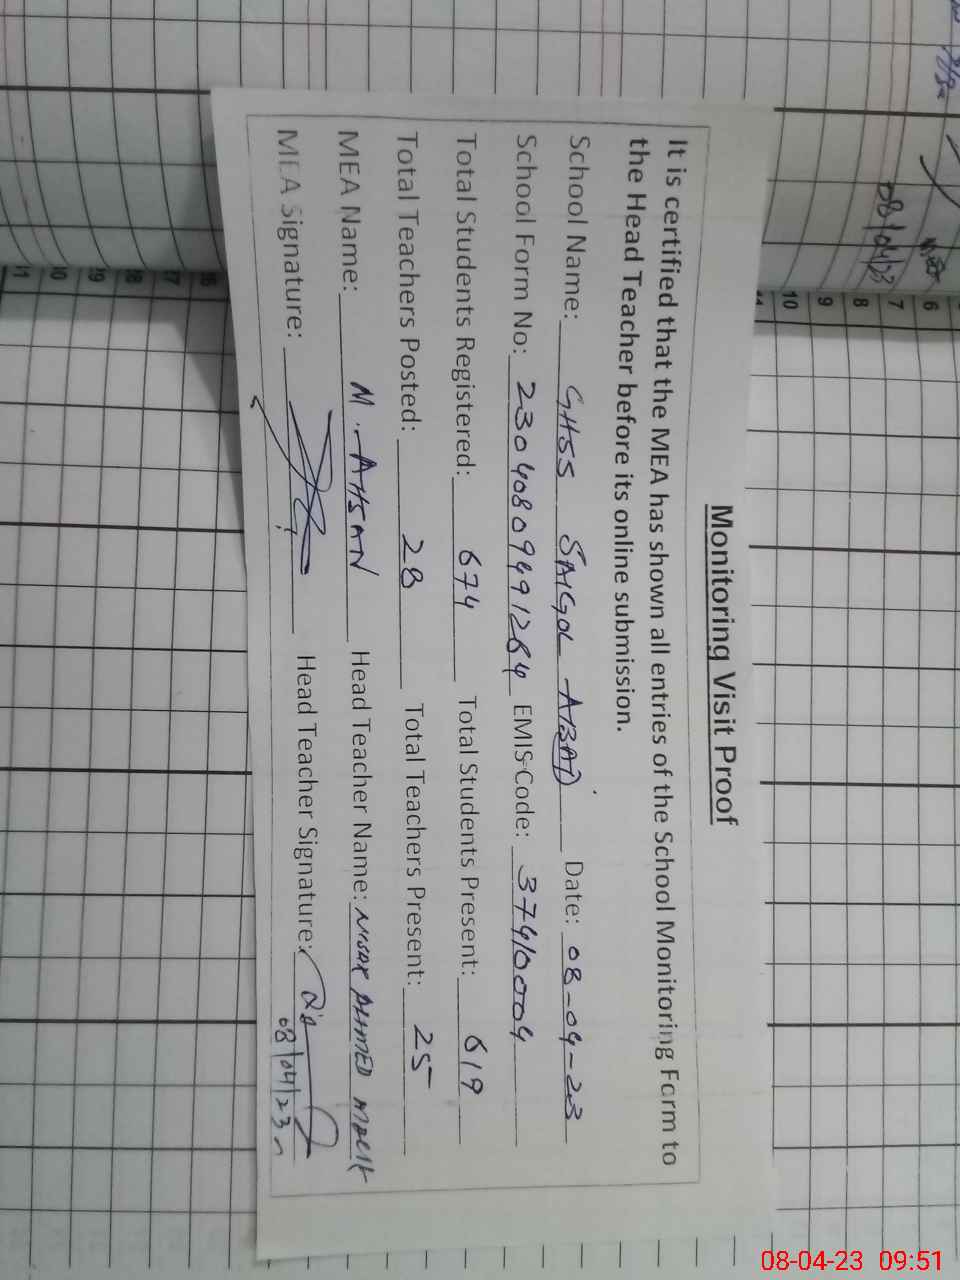 Monitoring Visit Proof
It is certified that the MEA has shown all entries of the School Monitoring Form to
the Head Teacher before its online submission.
School Name: GHSS SAIGOL ABAD Date: 08-04-23
School Form No: 23040809491264 EMIS Code: 37410004
Total Students Registered: 674 Total Students Present: 619
Total Teachers Posted: 28 Total Teachers Present: 25
MEA Name: M. AHSAN Head Teacher Name: NISAR AHMED MALIK
MEA Signature: Head Teacher Signature:
08/04/23
08/04/23
11 10 9 8 7 6
08-04-23 09:51